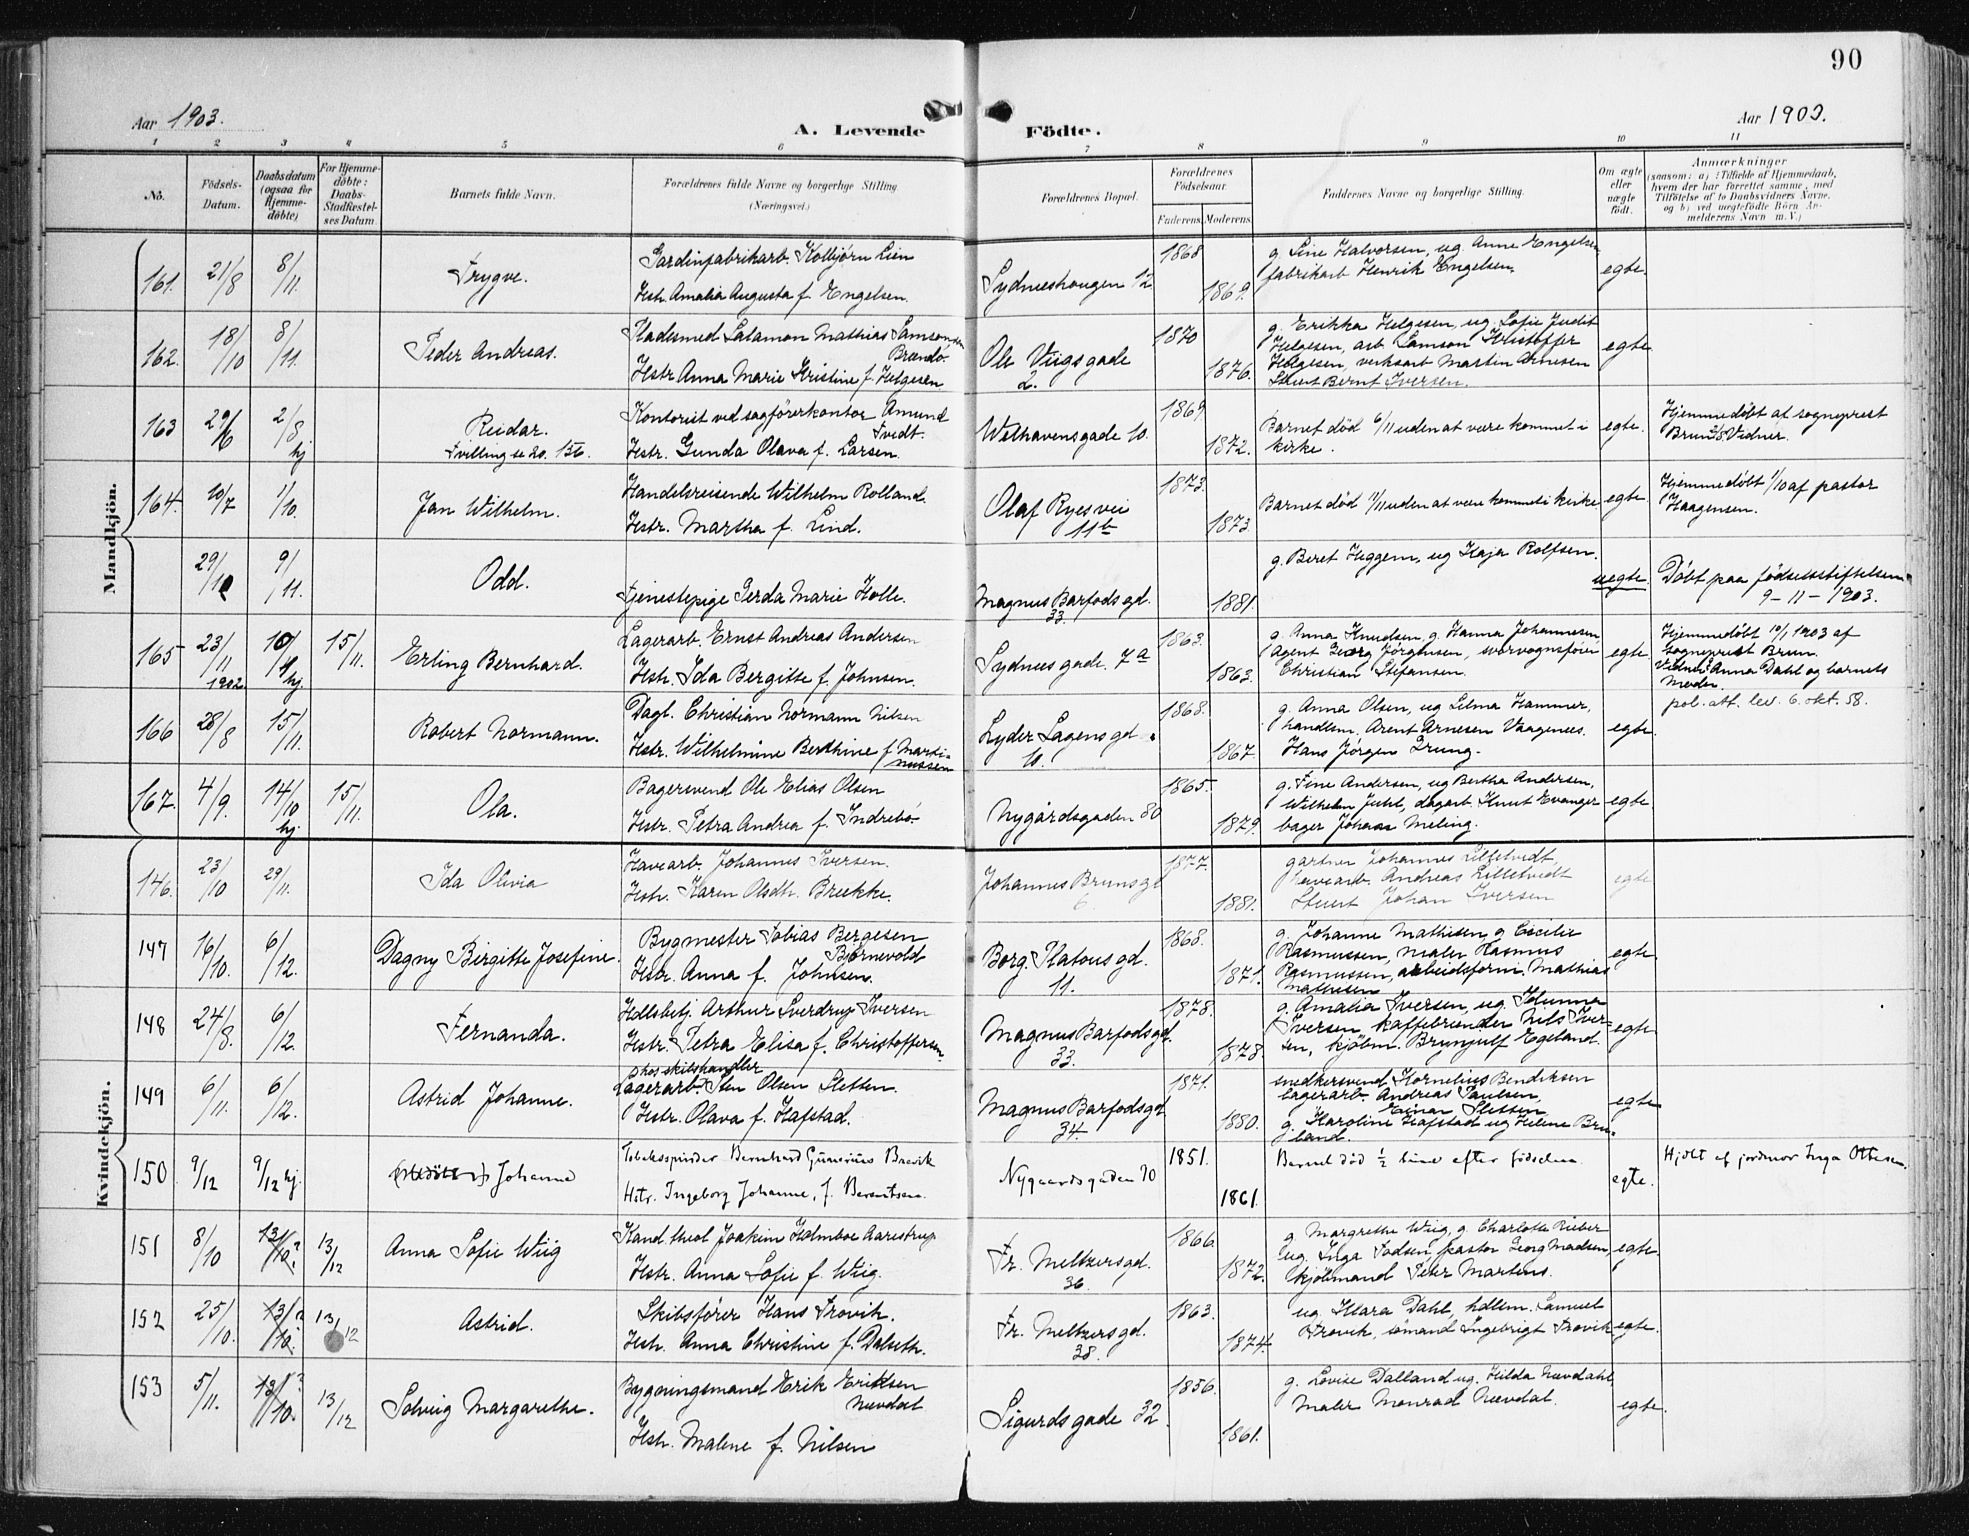 90
Aar 1903.
A. Levende Födte.
Aar 1903.
1 2 3 4 5 6 7 8 9 10 11
No.
Födsels-Datum.
Daabsdatum (ogsaa for Hjemme-döbte)
For Hjemme-döbte: Daabs-Stadfæstel-ses Datum.
Barnets fulde Navn.
Forældrenes fulde Navne og borgerlige Stilling
(Næringsvei.)
Forældrenes Bopæl.
Forældrenes Födselsaar.
Faderens. Moderens.
Faddernes Navne og borgerlige Stilling.
Om ægte eller uægte födt.
Anmærkninger
(saasom: a) i Tilfælde af Hjemmedaab,
hvem der har forrettet samme, med
Tilföielse af to Daabsvidners Navne,
og b) ved uægtefödte Börn An-
melderens Navn m. V.)
Mandkjön.
161. 21/8 8/11. Trygve.
Gardinfabrikarb. Kolbjørn Lien
Hstr. Amalia Augusta f. Engelsen.
Sydneshaugen 12
1868 1869.
g. Line Halvorsen, ug. Anne Engelsen
fabrikarb Henrik Engelsen.
egte.
162. 18/10 8/11. Peder Andreas.
Pladesmed Salamon Mathias Samsonsen
Brændø.
Hstr Anna Marie Kristine f. Helgesen
Ole Viigsgade
2.
1870 1876.
g. Erikka Helgesen, ug. Sofie Judit
Helgesen, arb Samson Kristoffer
Helgesen, verksarb Martin Arnesen
Stuert Bernt Iversen.
egte.
163 29/6 2/8 hj Reidar.
Tvilling se no. 156.
Kontorist ved sagførerkontor Amund
Tvedt.
Hstr. Gunda Olava f. Larsen.
Welhavensgade 10.
1869. 1872.
Barnet død 6/11 uden at være kommet i
kirke.
egte.
Hjemmedøbt af sogneprest
Brun. Vidner.
164. 10/7 1/10 Jan Wilhelm.
Handelsreisende Wilhelm Rolland.
Hstr. Martha f. Lind.
Olaf Ryesvei
11b
1873. 1873.
Barnet død 1/11 uden at være kommet i kirke
egte.
Hjemmedøbt 1/10 af pastor
Haagensen.
29/10 9/11. Odd.
Tjenestepige Gerda Marie Holle.
Magnus Barfods gd.
33.
1881.
g. Beret Heggem, ug Kaja Rolfsen.
uegte.
Döbt paa födselsstiftelsen
9-11-1903.
165 23/11 1902. 10/1 hj. 15/11. Erling Bernhard.
Lagerarb. Ernst Andreas Andersen
Hstr. Ida Bergitte f. Johnsen.
Sydnesgade 7a
1863. 1863.
g. Anna Knudsen, g. Hanna Johannesen
Agent Georg Jørgensen, sporvognsfører
Christian Stefansen.
egte.
Hjemmedøbt 10/1 1903 af
sogneprest Brun.
Vidner: Anna Dahl og barnets
Moder.
166 28/8 15/11. Robert Normann.
Dagl. Christian Normann Nilsen
Hstr. Wilhelmine Berthine f. Marti-
nussen
Lyder Sagens gd.
10.
1868. 1867
g. Anna Olsen, ug Selma Hammer,
handlm. Arent Arnesen Vaagenes.
Hans Jörgen Grung.
egte.
pol. att. lev. 6. okt. 58.
167. 4/9. 14/10 hj. 15/11. Ola.
Bagersvend Ole Elias Olsen
Hstr. Petra Andrea f. Indrebö
Nygårdsgaden 80
1865. 1879.
g. Tine Andersen, ug Bertha Andersen,
Wilhelm Juhl, dagarb. Knut Evanger
bager Johan Meling.
egte.
Kvindekjön.
146. 23/10 29/11. Ida Olivia
Havearb. Johannes Iversen.
Hstr. Karen Olsdtr. Brække.
Johannes Brunsgt
6.
1877. 1881.
gartner Johannes Lilletvedt,
havearb. Andreas Lilletvedt
Stuert Johan Iversen
egte
147 16/10. 6/12. Dagny Birgitte Josefine.
Bygmester Tobias Bergesen
Bjørnevold
Hstr. Anna f. Johnsen.
Borg. Platous gd.
11.
1868. 1871.
g. Johanne Mathisen, g Cecilie
Rasmussen, maler Rasmus
Rasmussen, arbeidsform. Mathias
Mathisen
egte.
148 24/8. 6/12. Fernanda.
Hdlsbetj. Arthur Sverdrup Iversen
Hstr. Petra Elisa f. Christoffersen.
Magnus Barfodsgd.
33.
1878. 1878.
g. Amalia Iversen, ug. Idunna
Iversen kaffebrænder Nils Iver-
sen, kjøbm. Brynjulf Egeland.
egte
149 6/11. 6/12. Astrid Johanne.
Lagerarb. Sten Olsen Sletten.
Hstr. Olava f. Hafstad.
Magnus Barfodsgd
34.
1871. 1880.
snedkersvend Kornelius Bendiksen
lagerarb. Andreas Paulsen,
Einar Sletten
g. Karoline Hafstad ug Helene Bru-
land.
egte
150 9/12 9/12 hj. Johanne
Tobaksspinder Bernhard Gunerius Brevik
Hstr. Ingeborg Johanne, f. Berentsen.
Nygaardsgaden 70
1851. 1861.
Barnet død 1/2 time efter fødselen
egte.
Hjdbt af jordmor Inga Ottesen.
151 8/10 13/10? 13/12 Anna Sofie Wiig
Kand. theol Joakim Holmboe Aarestrup
Hstr. Anna Sofie f. Wiig.
Fr. Meltzersgd.
36.
1866. 1872.
g. Margrethe Wiig, g. Charlotte Rieber
ug. Inga Todsen, pastor Georg Madsen,
kjöbmand Peter Martens.
egte.
152 25/10. 13/10? 13/12 Astrid.
Skibsfører Hans Trovik.
Hstr. Anna Christine f. Dalseth.
Fr. Meltzersgd.
38.
1863. 1874.
ug. Klara Dahl, hdlem. Samuel
Trovik, sømand Ingebrigt Trovik
egte.
153 5/11. 13/10? 13/12 Solveig Margarethe.
Bygningsmand Erik Eriksen
Nævdal
Hstr. Malene f. Nilsen
Sigurdsgade 32.
1856. 1861.
g. Lovise Dalland ug. Hilda Nævdahl
Maler Monrad Nævdal.
egte.